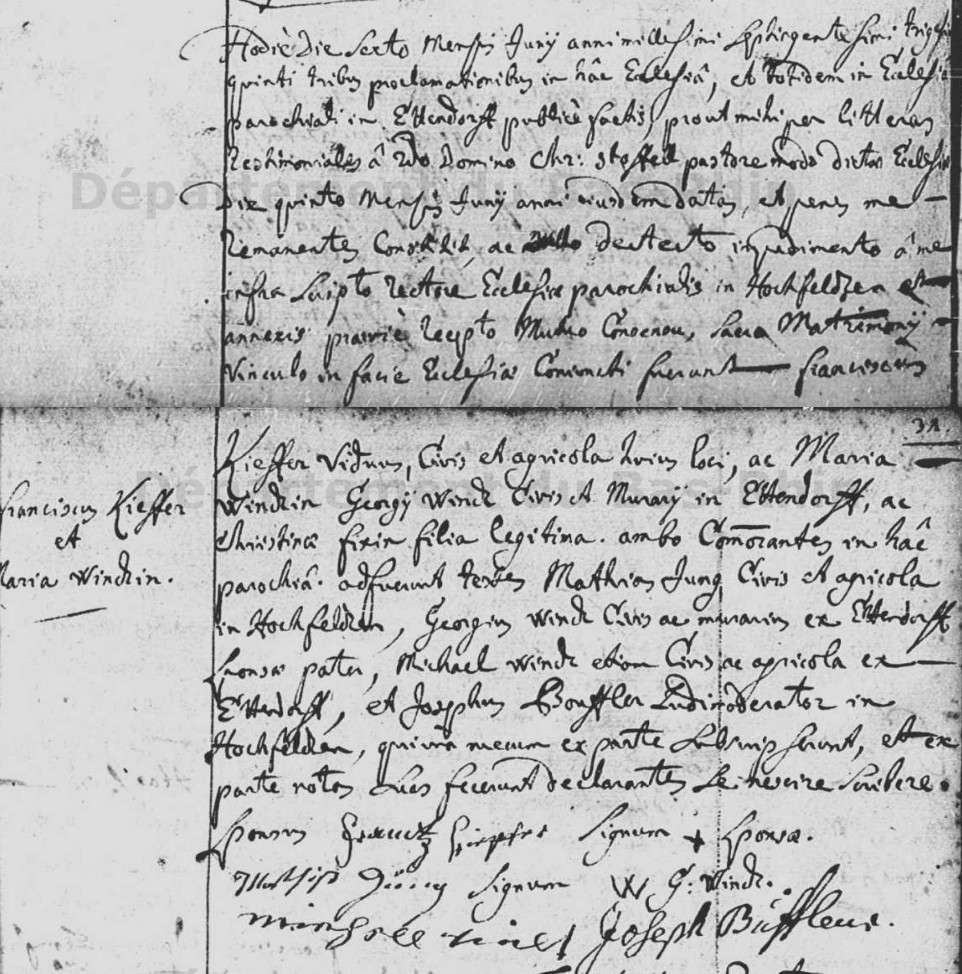 Hodiè Die Sexto Mensis Junÿ anni millesimi septingentesimi trigesimi
quinti tribus proclamationibus in hâc Ecclesiâ, et totidem in Ecclesia
parochiali in Ettendorff publicè factis, prout mihi per litteras
testimoniales â Rdo Domino Chr: stoffel pastore modo dictæ Ecclesiæ
Die quinto Mensis Junÿ anni eiusdem datas, et penes me
remanentes Constitit, ac nullo detecto impedimento â me
infra scripto rectore Ecclesiæ parochialis in Hochfelden et
annexis præviè recepto Mutuo Consensu, sacra Matrimonÿ
Vinculo in facie Ecclesiæ Coniuncti fuerunt franciscus
31.
Kieffer Viduus, Civis et agricola huius loci, ac Maria
Windkin Georgÿ Winck Civis et Murarÿ in Ettendorff, ac
Christinæ fixin filia legitima. ambo Com̄orantes in hâc
parochiâ. adfuerunt testes Mathias Jung Civis et agricola
in Hochfelden, Georgius Winck Civis ac murarius ex Ettendorff
sponsæ pater, Michael Winck etiam Civis ac agricola ex
Ettendorff, et Josephus Bouffler Ludimoderator in
Hochfelden, qui una mecum ex parte subscripserunt, et ex
parte notas suas fecerunt declarantes se nescire scribere.
franciscus Kieffer
et
Maria Winckin.
sponsus Frantz Signum + sponsæ.
Signum W G: Winck.
Joseph Büffleur.
Département du Bas-Rhin
Département du Bas-Rhin